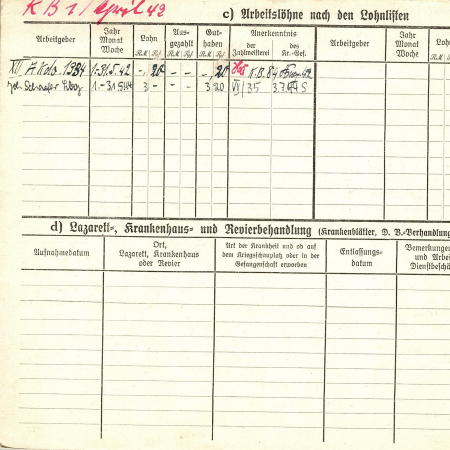 K B 1 / April 42
c) Arbeitslöhne nach den Lohnlisten
Arbeitgeber Jahr Monat Woche Lohn RM. Pf. Aus-gezahlt RM. Pf. Gut-haben RM. Pf. Anerkenntnis der Zahlmeisterei des Kr.-Gef. Arbeitgeber Jahr Monat Woche
XII A.Kdo. 1384 1.-31.5.42 - 20 - - - 20 K.B. 84
1.-31.5.44 3 - - - 3 20 VI/35 3.7.44 S
d) Lazarett-, Krankenhaus- und Revierbehandlung (Krankenblätter, D. B.-Verhandlung
Aufnahmedatum Ort, Lazarett, Krankenhaus oder Revier Art der Krankheit und ob auf dem Kriegsschauplatz oder in der Gefangenschaft erworben Entlassungs-datum Bemerkungen und Arbe Dienstbeschä